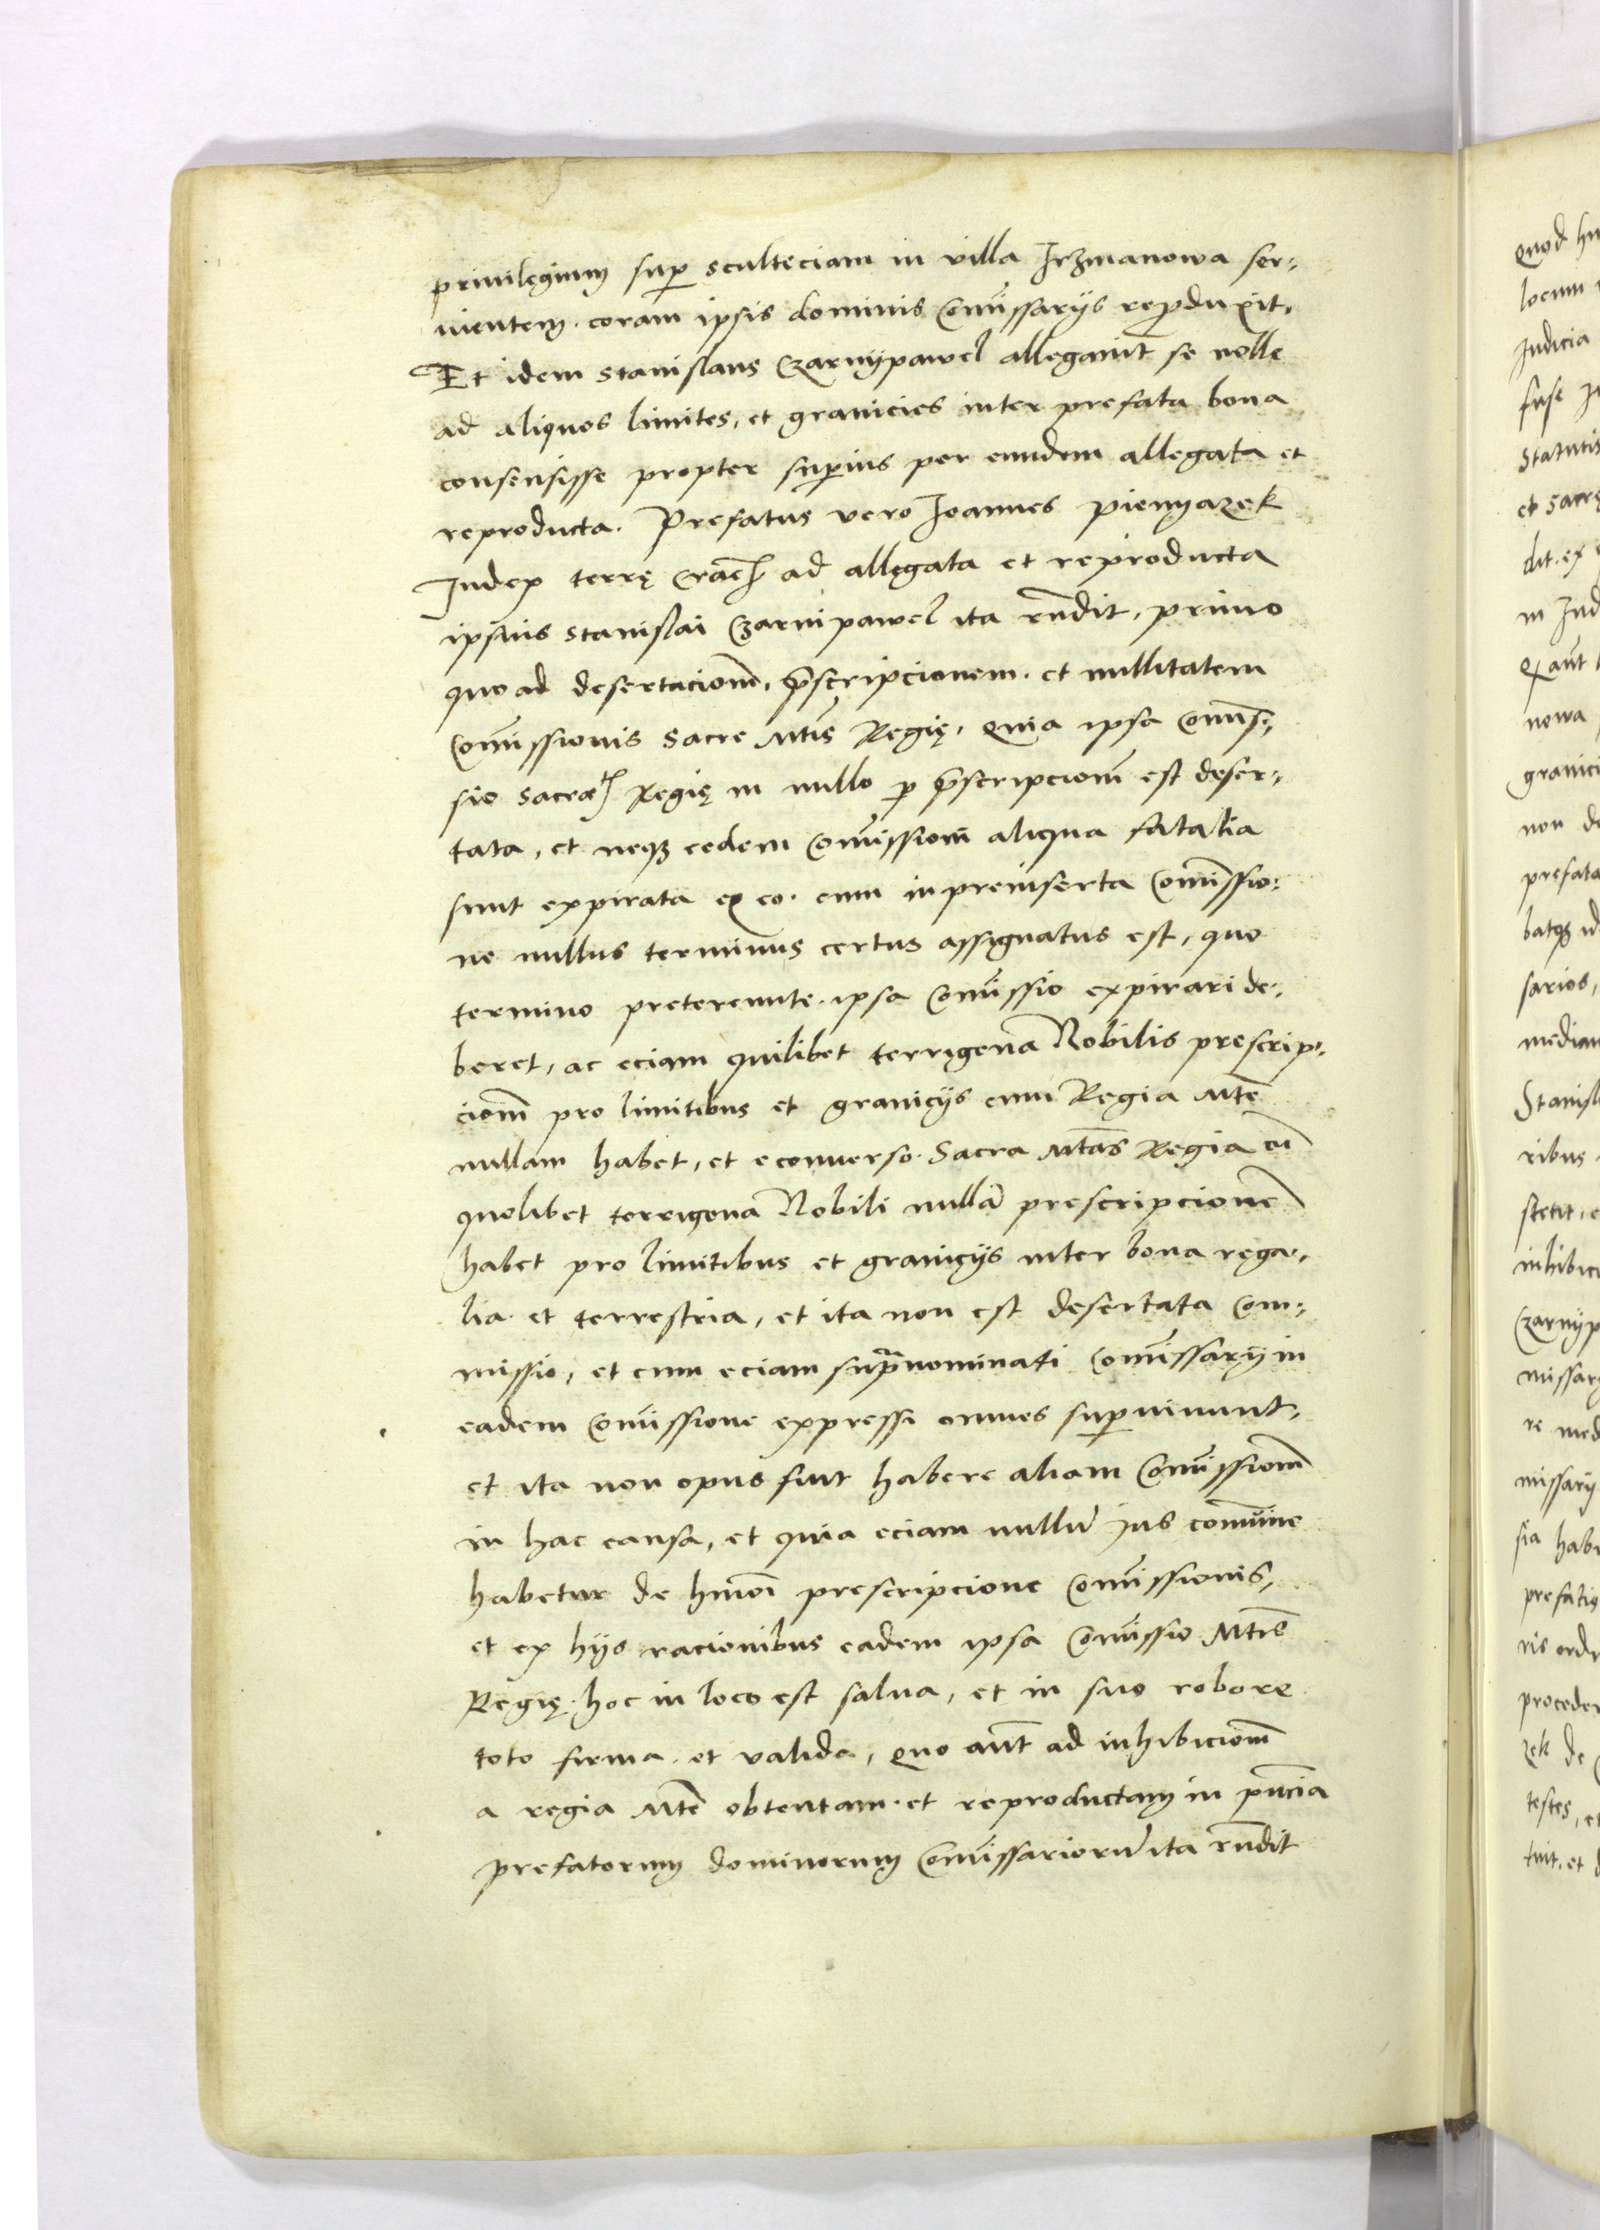 privilęgium sup sculteciam in villa Irzmanowa ser:
uientem. coram ipsis dominis Comissarijs reproduxit.
Et idem Stanislaus Czarnÿpawel allegauit se nolle
ad aliquos limites, et granicies inter prefata bona
consensisse propter superius per eundem allegata et
reproducta. Prefatus vero Joannes Pienyazek
Judex terrę Crac ad allęgata et reproducta
ipsius Stanislai Czarnipawel ita rndit, primo
quo ad desertacionē, pscripcionem. et nullitatem
Comissionis Sacre Mtis Regię, Quia ipsa Comis:
sio Sacrae Regię in nullo p pscripcionē est deser:
tata, et neqз eedem Comissioni aliqua fatalia
sunt expirata ex eo. cum in preinserta Comissio:
ne nullus terminus certus assignatus est, quo
termino pretereunte. ipsa Comissio expirari de:
beret, ac eciam quilibet terrigena Nobilis prescrip:
cionē pro limitibus et granicijs cum Regia Mte
nullam habet, et econuerso. Sacra Mtas Regia cū
quolibet terrigena Nobili nullā prescripcionē
habet pro limitibus et granicijs inter bona rega:
lia et terrestria, et ita non est desertata Com:
missio, et cum eciam supranominati Comissarij in
eadem Comissione expressi omnes superuiuunt,
et ita non opus fuit habere aliam Comissionē
in hac causa, et quia eciam nullū Jus comune
habetur de hmōi prescripcione Comissionis,
et ex hijs racionibus eadem ipsa Comissio Mtis
Regię. hoc in loco est salua, et in suo robore
toto firma. et valida, Quo aūt ad inhibicionē
a regia Mte obtentam. et reproductam in pncia
prefatorum dominorum Comissariorū ita rndit